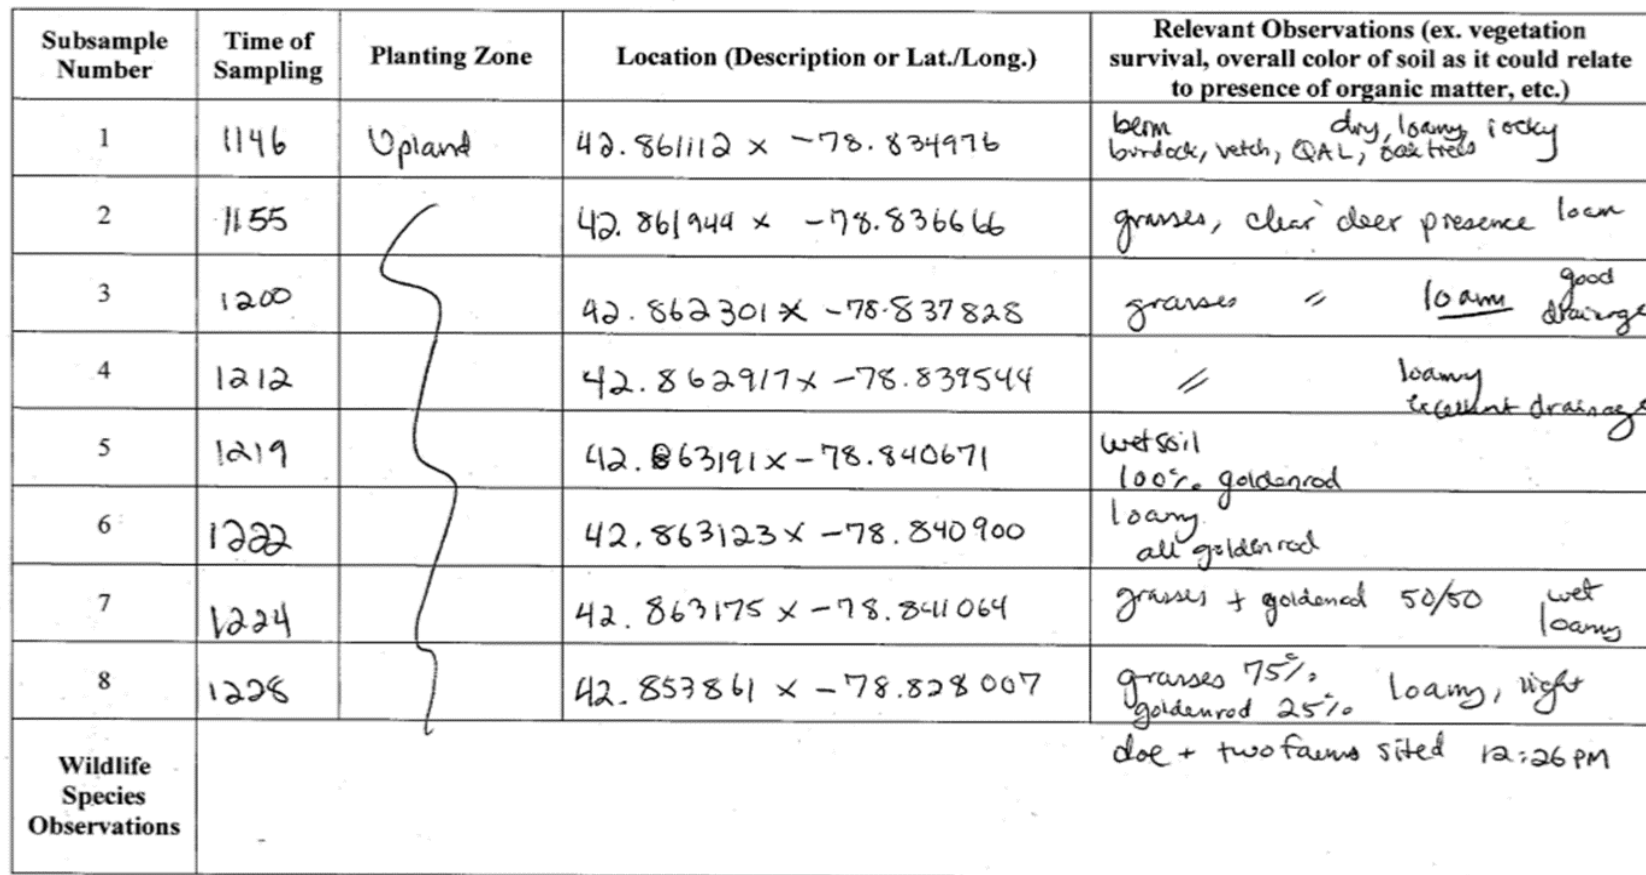 Subsample Number | Time of Sampling | Planting Zone | Location (Description or Lat./Long.) | Relevant Observations (ex. vegetation survival, overall color of soil as it could relate to presence of organic matter, etc.)
1 | 1146 | Upland | 42.861112 x -78.834976 | berm dry, loamy, rocky burdock, vetch, QAL, oak trees
2 | 1155 | 42.861944 x -78.836666 | grasses, clear deer presence loam
3 | 1200 | 42.862301 x -78.837828 | grasses " loamy good drainage
4 | 1212 | 42.862917 x -78.839544 | " loamy excellent drainage
5 | 1219 | 42.863191 x -78.840671 | wet soil 100% goldenrod
6 | 1222 | 42.863123 x -78.840900 | loamy all goldenrod
7 | 1224 | 42.863175 x -78.841064 | grasses + goldenrod 50/50 wet loamy
8 | 1228 | 42.857861 x -78.828007 | grasses 75% goldenrod 25% loamy,
Wildlife Species Observations | doe + two fawns sited 12:26 PM